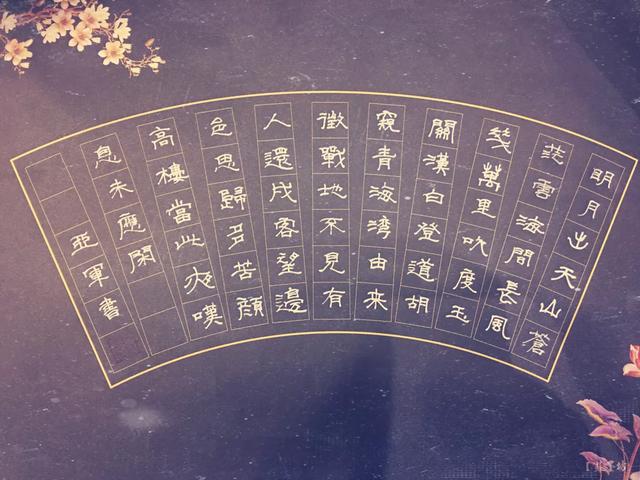 明月出天山蒼
茫雲海間長風
幾萬里吹度玉
關漢白登道胡
窺青海湾由来
徵戰地不見有
人還戍客望邊
色思歸多苦顔
高樓當此夜嘆
息未應閑
亚軍書